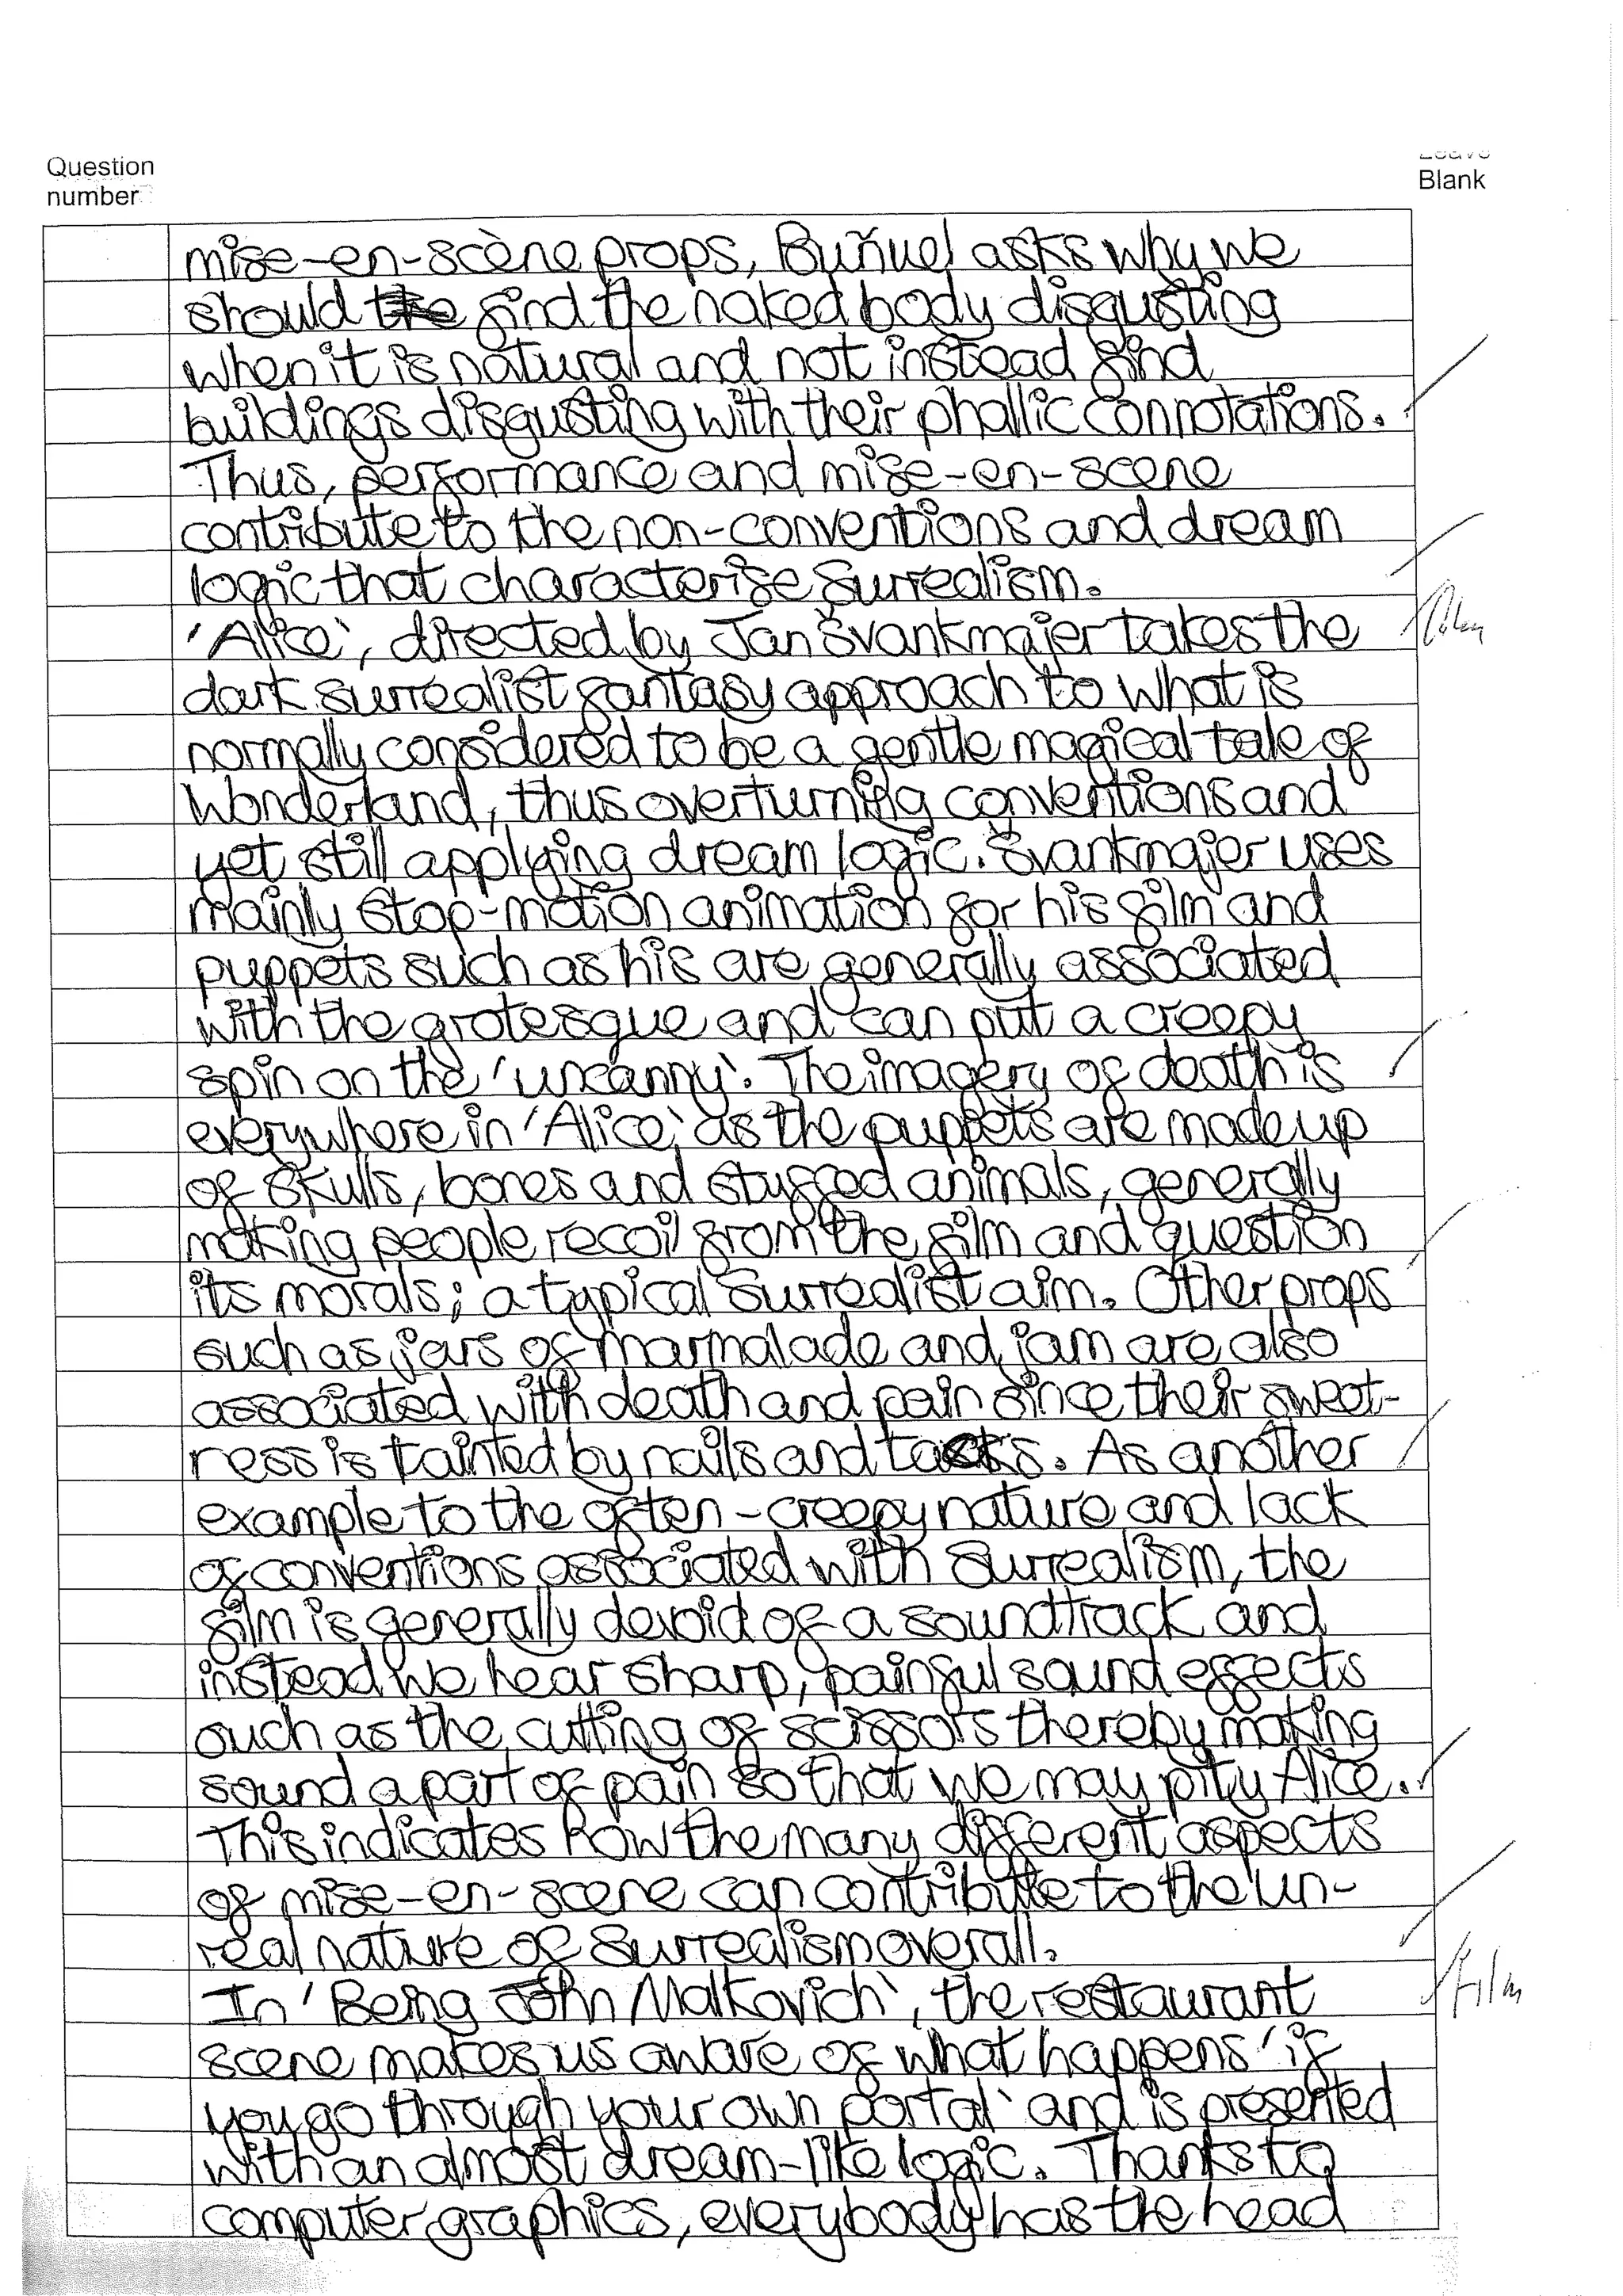 Question
number
Blank
mise-en-scène props, Buñuel asks why we
should the find the naked body disgusting
when it is natural and not instead find
buildings disgusting with their phallic connotations.
Thus, performance and mise-en-scene
contribute to the non-conventions and dream
logic that characterise Surrealism.
'Alice', directed by Jan Švankmajer takes the
dark surrealist fantasy approach to what is
normally considered to be a gentle magical tale of
Wonderland, thus overturning conventions and
yet still applying dream logic. Švankmajer uses
mainly stop-motion animation for his film and
puppets such as his are generally associated
with the grotesque and can put a creepy
spin on the 'uncanny'. The imagery of death is
everywhere in 'Alice' as the puppets are made up
of skulls, bones and stuffed animals, generally
making people recoil from the film and question
its morals; a typical Surrealist aim. Other props
such as jars of marmalade and jam are also
associated with death and pain since their sweet-
ness is tainted by nails and tacks. As another
example to the often-creepy nature and lack
of conventions associated with Surrealism, the
film is generally devoid of a soundtrack and
instead we hear sharp, painful sound effects
such as the cutting of scissors thereby making
sound a part of pain so that we may pity Alice.
This indicates how the many different aspects
of mise-en-scene can contribute to the un-
real nature of Surrealism overall.
In 'Being John Malkovich', the restaurant
film
scene makes us aware of what happens 'if
you go through your own portal' and is presented
with an almost dream-like logic. Thanks to
computer graphics, everybody has the head